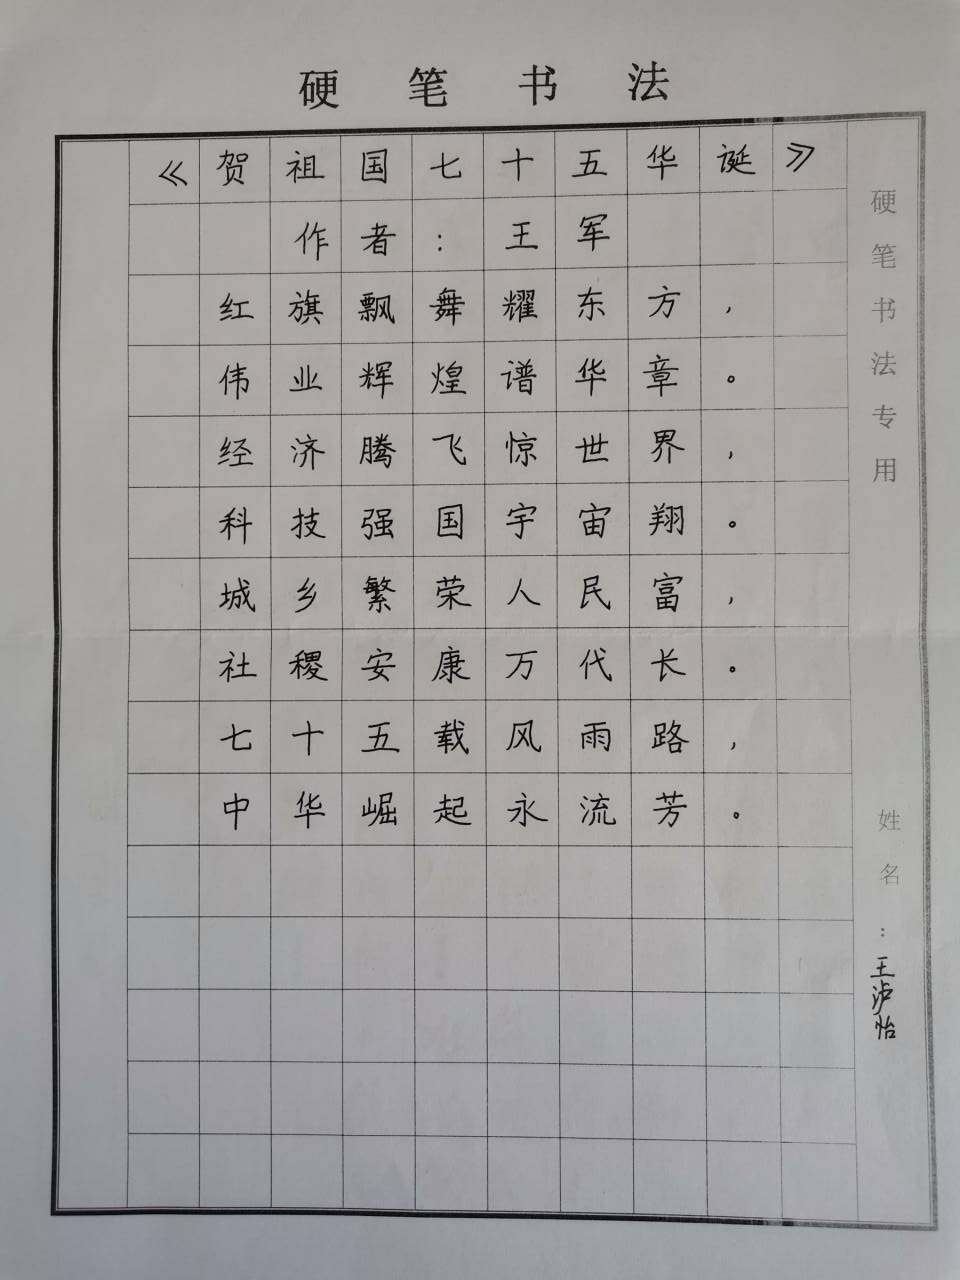 硬笔书法
《贺祖国七十五华诞》
作者：王军
红旗飘舞耀东方，
伟业辉煌谱华章。
经济腾飞惊世界，
科技强国宇宙翔。
城乡繁荣人民富，
社稷安康万代长。
七十五载风雨路，
中华崛起永流芳。
硬笔书法专用
姓名：王泸怡